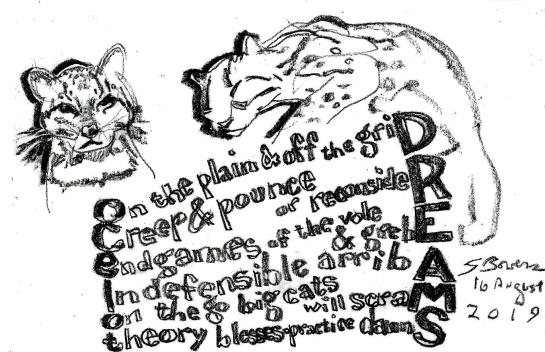 On the plain & off the griD
Creep & pounce or reconsideR
endgames of the vole & grebE
Indefensible arribA
on the go big cats will scraM
theory blesses practice damnS
16 August
2019